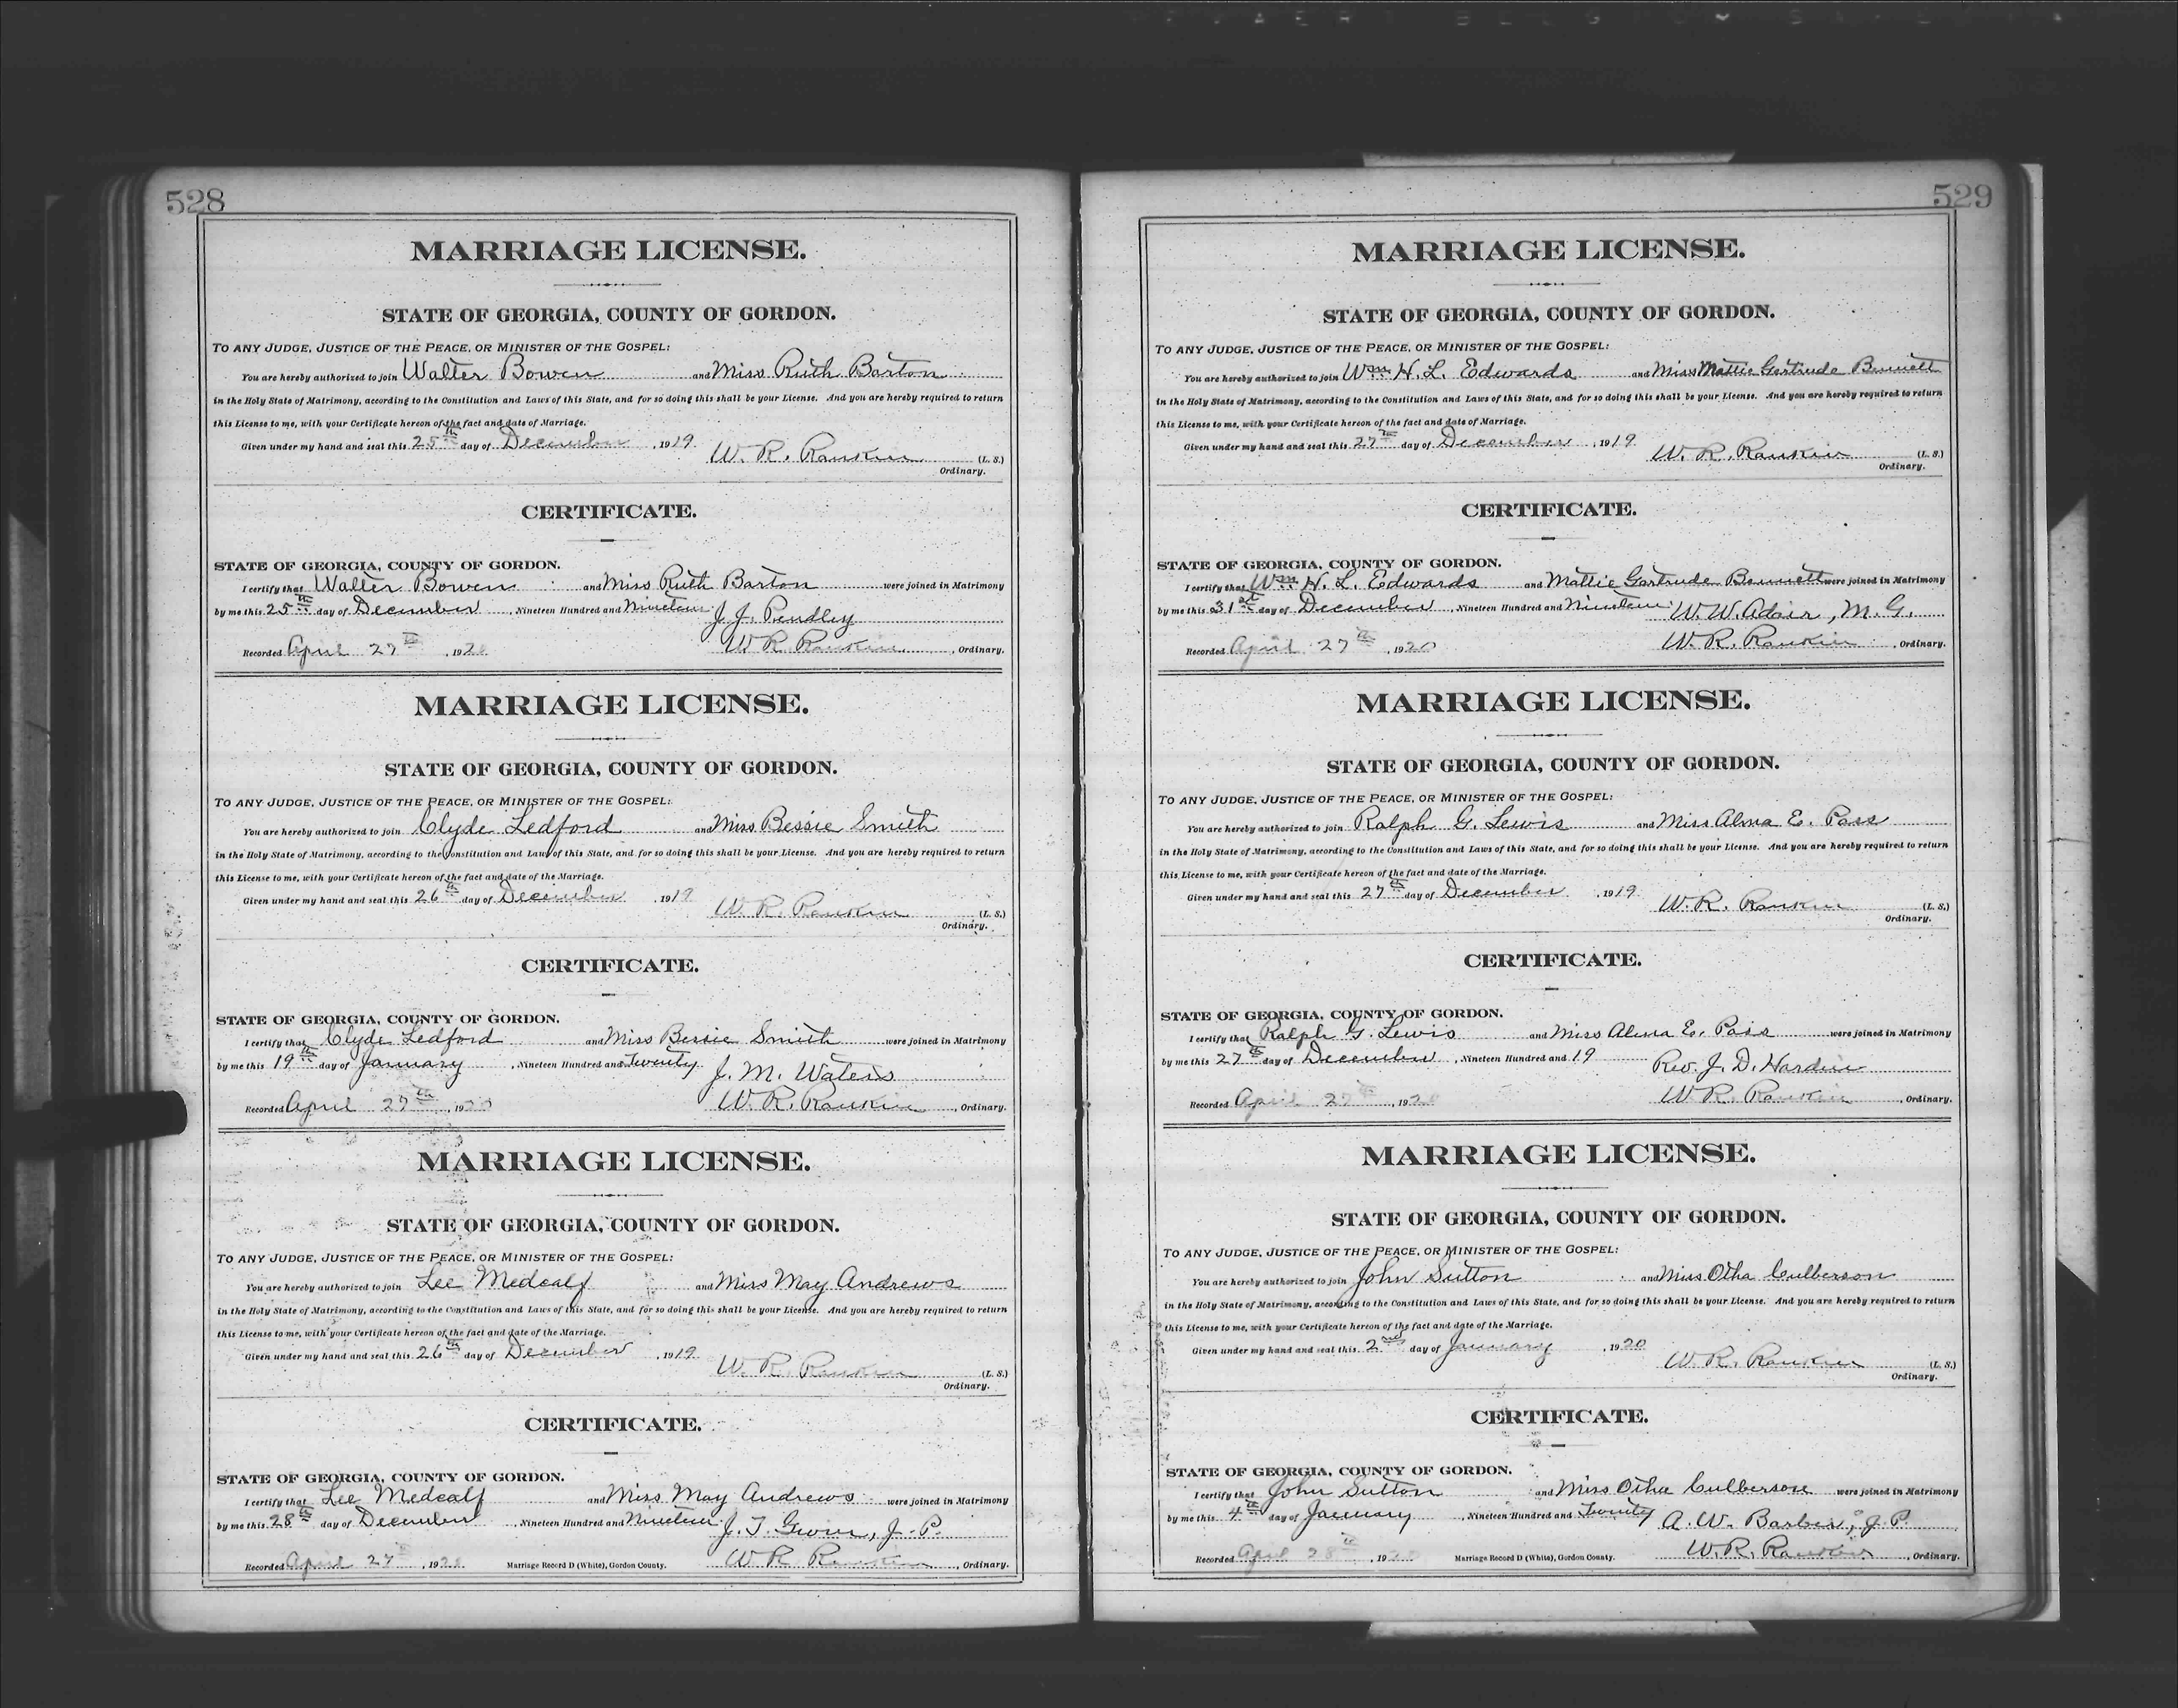 528
MARRIAGE LICENSE.
STATE OF GEORGIA, COUNTY OF GORDON.
TO ANY JUDGE, JUSTICE OF THE PEACE, OR MINISTER OF THE GOSPEL:
You are hereby authorized to join Walter Bowen and Miss Ruth Barton
in the Holy State of Matrimony, according to the Constitution and Laws of this State, and for so doing this shall be your License. And you are hereby required to return
this License to me, with your Certificate hereon of the fact and date of Marriage.
Given under my hand and seal this 25th day of December, 1919.
W. R. Rankin (L. S.)
Ordinary.
CERTIFICATE.
STATE OF GEORGIA, COUNTY OF GORDON.
I certify that Walter Bowen and Miss Ruth Barton were joined in Matrimony
by me this 25th day of December, Nineteen Hundred and Nineteen. J. J. Pendley
Recorded April 27th, 1920 W. R. Rankin, Ordinary.
MARRIAGE LICENSE.
STATE OF GEORGIA, COUNTY OF GORDON.
TO ANY JUDGE, JUSTICE OF THE PEACE, OR MINISTER OF THE GOSPEL:
You are hereby authorized to join Clyde Ledford and Miss Bessie Smith
in the Holy State of Matrimony, according to the Constitution and Laws of this State, and for so doing this shall be your License. And you are hereby required to return
this License to me, with your Certificate hereon of the fact and date of the Marriage.
Given under my hand and seal this 26th day of December, 1919
W. R. Rankin (L. S.)
Ordinary.
CERTIFICATE.
STATE OF GEORGIA, COUNTY OF GORDON.
I certify that Clyde Ledford and Miss Bessie Smith were joined in Matrimony
by me this 19th day of January, Nineteen Hundred and Twenty. J. M. Waters
Recorded April 27th, 1920 W. R. Rankin, Ordinary.
MARRIAGE LICENSE.
STATE OF GEORGIA, COUNTY OF GORDON.
TO ANY JUDGE, JUSTICE OF THE PEACE, OR MINISTER OF THE GOSPEL:
You are hereby authorized to join Lee Medcalf and Miss May Andrews
in the Holy State of Matrimony, according to the Constitution and Laws of this State, and for so doing this shall be your License. And you are hereby required to return
this License to me, with your Certificate hereon of the fact and date of the Marriage.
Given under my hand and seal this 26th day of December, 1919.
W. R. Rankin (L. S.)
Ordinary.
CERTIFICATE.
STATE OF GEORGIA, COUNTY OF GORDON.
I certify that Lee Medcalf and Miss May Andrews were joined in Matrimony
by me this 28th day of December, Nineteen Hundred and Nineteen. J. T. J. P.
Recorded April 27, 1920 Marriage Record D (White), Gordon County. W. R. Rankin, Ordinary.
529
MARRIAGE LICENSE.
STATE OF GEORGIA, COUNTY OF GORDON.
TO ANY JUDGE, JUSTICE OF THE PEACE, OR MINISTER OF THE GOSPEL:
You are hereby authorized to join Wm H. L. Edwards and Miss Mattie Gertrude Bennett
in the Holy State of Matrimony, according to the Constitution and Laws of this State, and for so doing this shall be your License. And you are hereby required to return
this License to me, with your Certificate hereon of the fact and date of Marriage.
Given under my hand and seal this 27th day of December, 1919.
W. R. Rankin (L. S.)
Ordinary.
CERTIFICATE.
STATE OF GEORGIA, COUNTY OF GORDON.
I certify that Wm H. L. Edwards and Mattie Gertrude Bennett were joined in Matrimony
by me this 31st day of December, Nineteen Hundred and Nineteen. W. W. Adair, M. G.
Recorded April 27th, 1920 W. R. Rankin, Ordinary.
MARRIAGE LICENSE.
STATE OF GEORGIA, COUNTY OF GORDON.
TO ANY JUDGE, JUSTICE OF THE PEACE, OR MINISTER OF THE GOSPEL:
You are hereby authorized to join Ralph G. Lewis and Miss Alma E. Pass
in the Holy State of Matrimony, according to the Constitution and Laws of this State, and for so doing this shall be your License. And you are hereby required to return
this License to me, with your Certificate hereon of the fact and date of the Marriage.
Given under my hand and seal this 27th day of December, 1919.
W. R. Rankin (L. S.)
Ordinary.
CERTIFICATE.
STATE OF GEORGIA, COUNTY OF GORDON.
I certify that Ralph G. Lewis and Miss Alma E. Pass were joined in Matrimony
by me this 27th day of December, Nineteen Hundred and 19 Rev. J. D. Hardin
Recorded April 27th, 1920 W. R. Rankin, Ordinary.
MARRIAGE LICENSE.
STATE OF GEORGIA, COUNTY OF GORDON.
TO ANY JUDGE, JUSTICE OF THE PEACE, OR MINISTER OF THE GOSPEL:
You are hereby authorized to join John Sutton and Miss Otha Culberson
in the Holy State of Matrimony, according to the Constitution and Laws of this State, and for so doing this shall be your License. And you are hereby required to return
this License to me, with your Certificate hereon of the fact and date of the Marriage.
Given under my hand and seal this 2nd day of January, 1920
W. R. Rankin (L. S.)
Ordinary.
CERTIFICATE.
STATE OF GEORGIA, COUNTY OF GORDON.
I certify that John Sutton and Miss Otha Culberson were joined in Matrimony
by me this 4th day of January, Nineteen Hundred and Twenty A. W. Barber, J. P.
Recorded April 28th, 1920 Marriage Record D (White), Gordon County. W. R. Rankin, Ordinary.